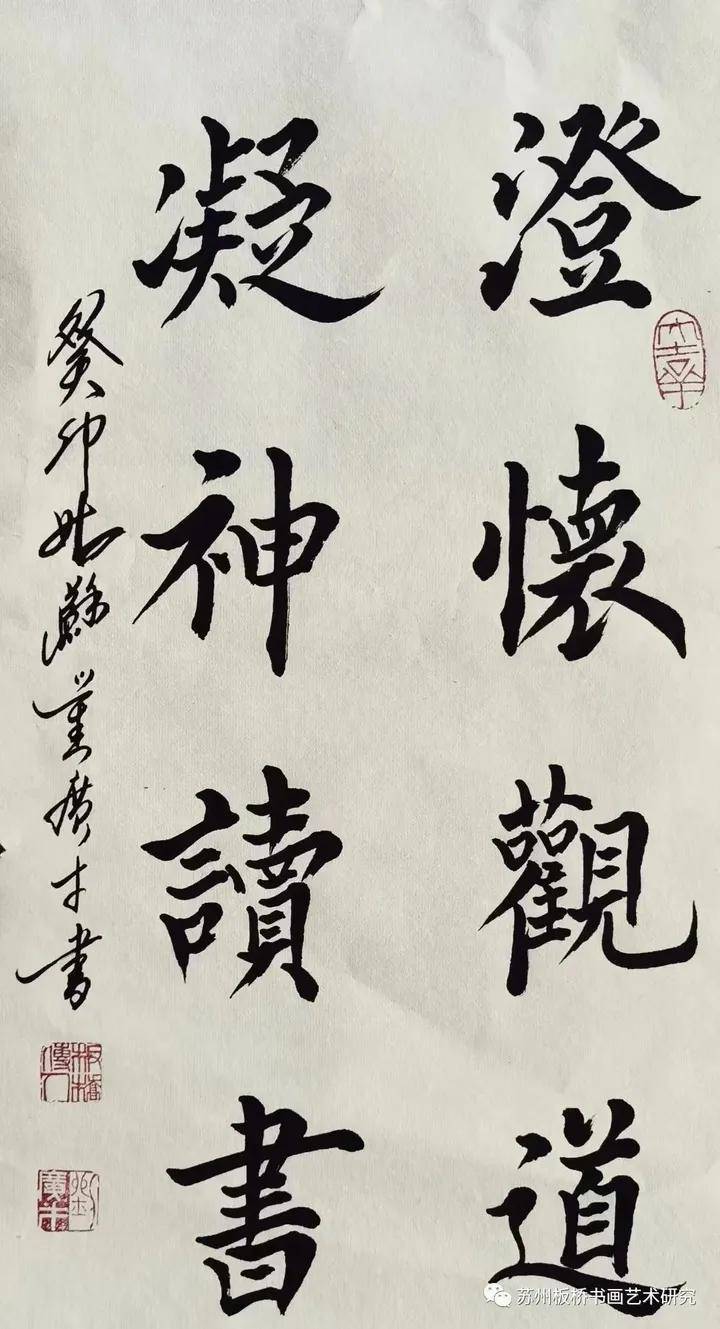 澄懷觀道
凝神讀書
癸卯姑蘇廣才書
板橋傳人
苏州板桥书画艺术研究